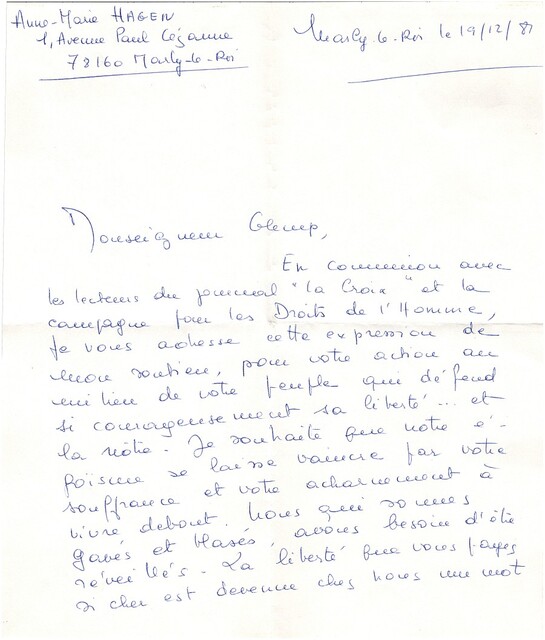 Anne-Marie HAGEN
1, Avenue Paul Cézanne
78160 Marly-le-Roi
Marly-le-Roi le 19/12/81
Monseigneur Glemp,
En communion avec
les lecteurs du journal "la Croix" et la
campagne pour les Droits de l'Homme,
je vous adresse cette expression de
mon soutien, pour votre action au
milieu de votre peuple qui défend
si courageusement sa liberté... et
la nôtre. Je souhaite que notre é-
goisme se laisse vaincre par votre
souffrance et votre acharnement à
vivre debout. Nous qui sommes
gavés et blasés, avons besoin d'être
réveillés. La liberté que vous payez
si cher est devenue chez nous un mot